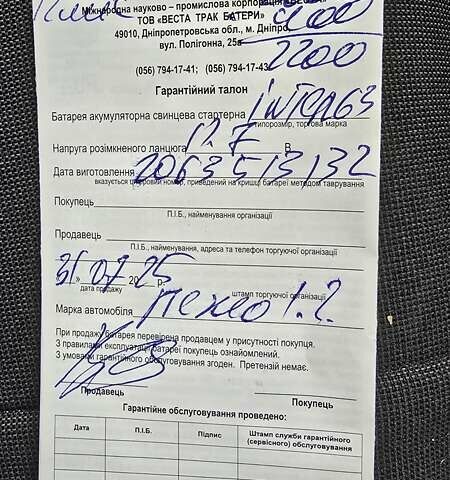 Міжнародна науково – промислова корпорація
ТОВ «ВЕСТА ТРАК БАТЕРИ»
49010, Дніпропетровська обл., м. Дніпро,
вул. Полігонна, 25а
2200
(056) 794-17-41; (056) 794-17-43
Гарантійний талон
Батарея акумуляторна свинцева стартерна Інтер 63
типорозмір, торгова марка
Напруга розімкненого ланцюга 12.7 В
Дата виготовлення 2063513132
вказується цифровий номер, приведений на кришці батареї методом таврування
Покупець
П.І.Б., найменування організації
Продавець
П.І.Б., найменування, адреса та телефон торгуючої організації
31 » 07 2025 р.
дата продажу штамп торгуючої організації
Марка автомобіля Пежо 1.2
При продажу батарея перевірена продавцем у присутності покупця.
З правилами експлуатації батареї покупець ознайомлений.
З умовами гарантійного обслуговування згоден. Претензій немає.
Продавець Покупець
Гарантійне обслуговування проведено:
Дата П.І.Б. Підпис Штамп служби гарантійного
(сервісного) обслуговування